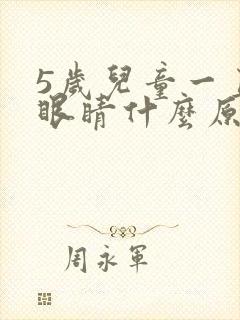 5歲兒童一
眼睛什麼原
周永軍